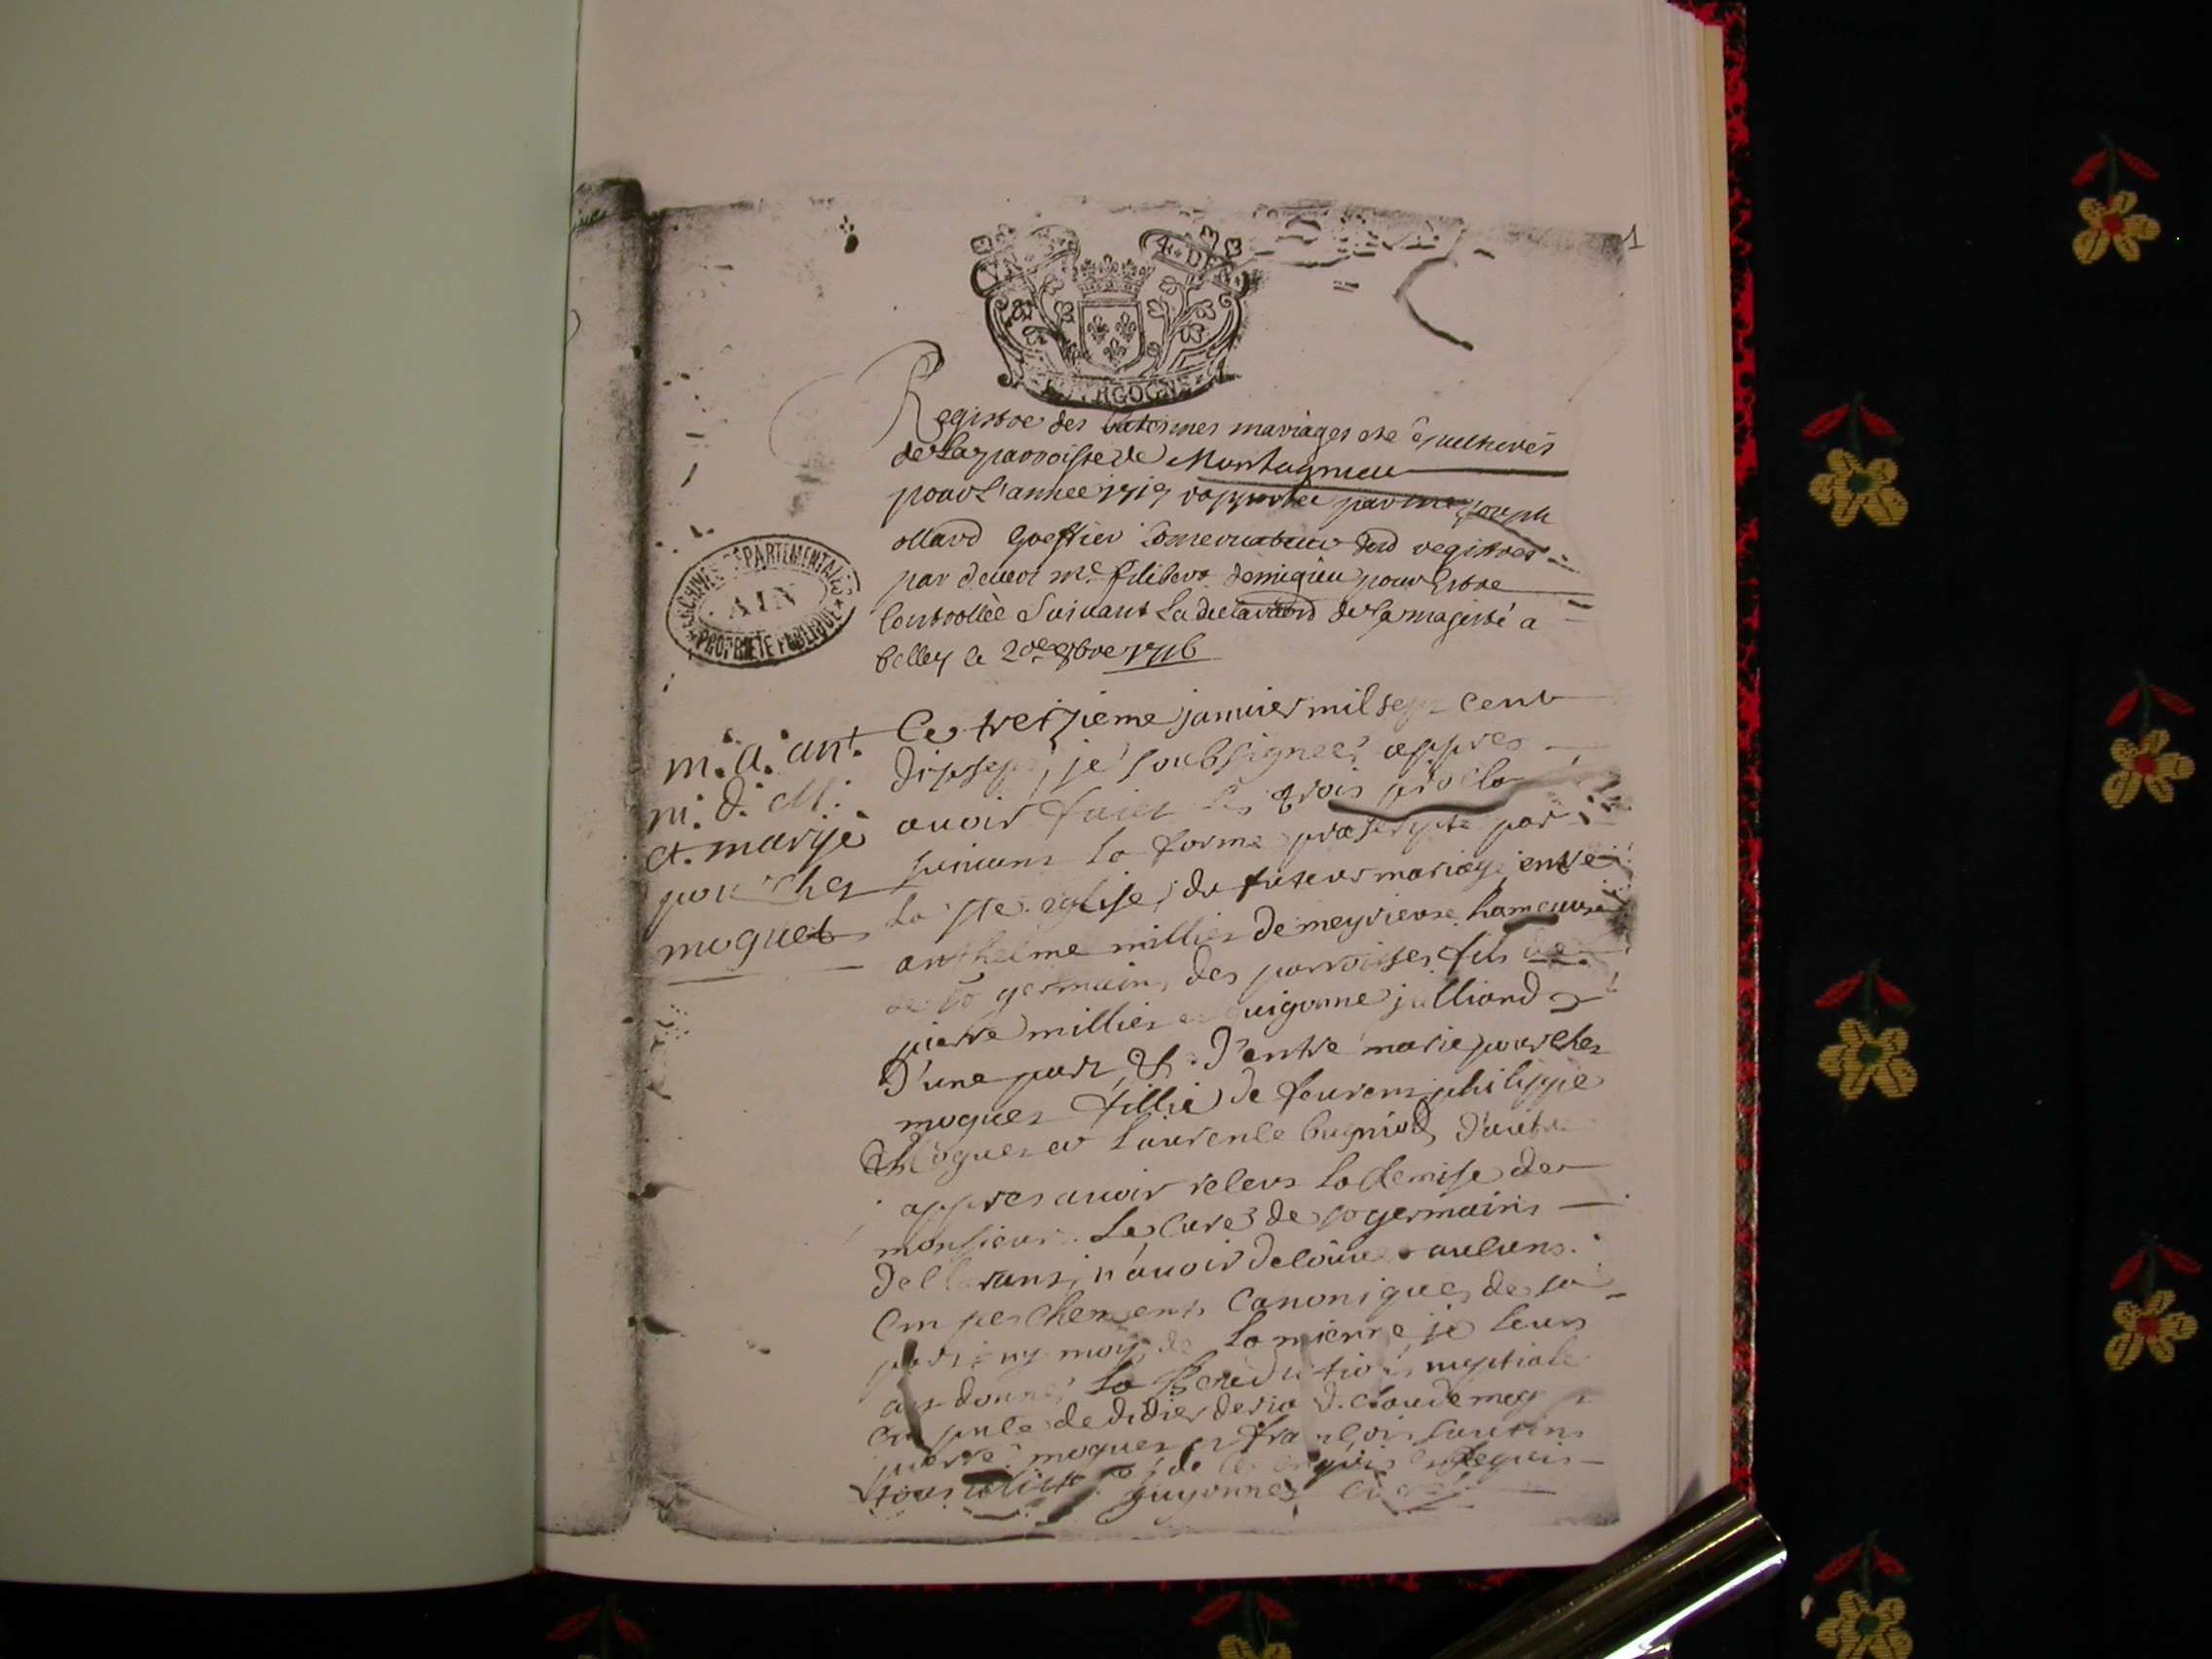 1
4. DE
RGOGN
Registre des batesmes mariages et sepultures
de la parroisse de Montagnieu
pour l'annee 1717 rapportée par me Joseph
ollard greffier conservateur desd registres
par devers me filibert demigieu pour estre
Controllée Suivant La declaration de sa majesté a
belley le 20e 8bre 1716
ARCHIVES DÉPARTEMENTALES
AIN
PROPRIÉTÉ PUBLIQUE
m. a. ant.
m. d. M.
et. marie
pourcher
moguet
Ce treizieme janvier mil sept cent
dixsept, je soubsignee appres
avoir faict les trois procla
suivant la forme prescripte par
la ste eglise, du futeur mariage entre
anthelme millier de meyrieuse hameau
de st germain, des parroisses fils de
pierre millier et guigonne julliand
d'une part, & d'entre marie pourcher
moguet fillie de feurent philippe
Moguet et laurence bugniod d'autre
appres avoir releus la Remise de
monsieur Le Cure de st germains
declarant, n'avoir decouvert auluns
Empeschements Canoniques de sa
part, ny moy de la mienne, je leurs
ay donné la benediction nuptiale
en pnce de didier deria d. claude mog
pierre moguet et francois
tous de ce enquis et Requis
guyonnet curé